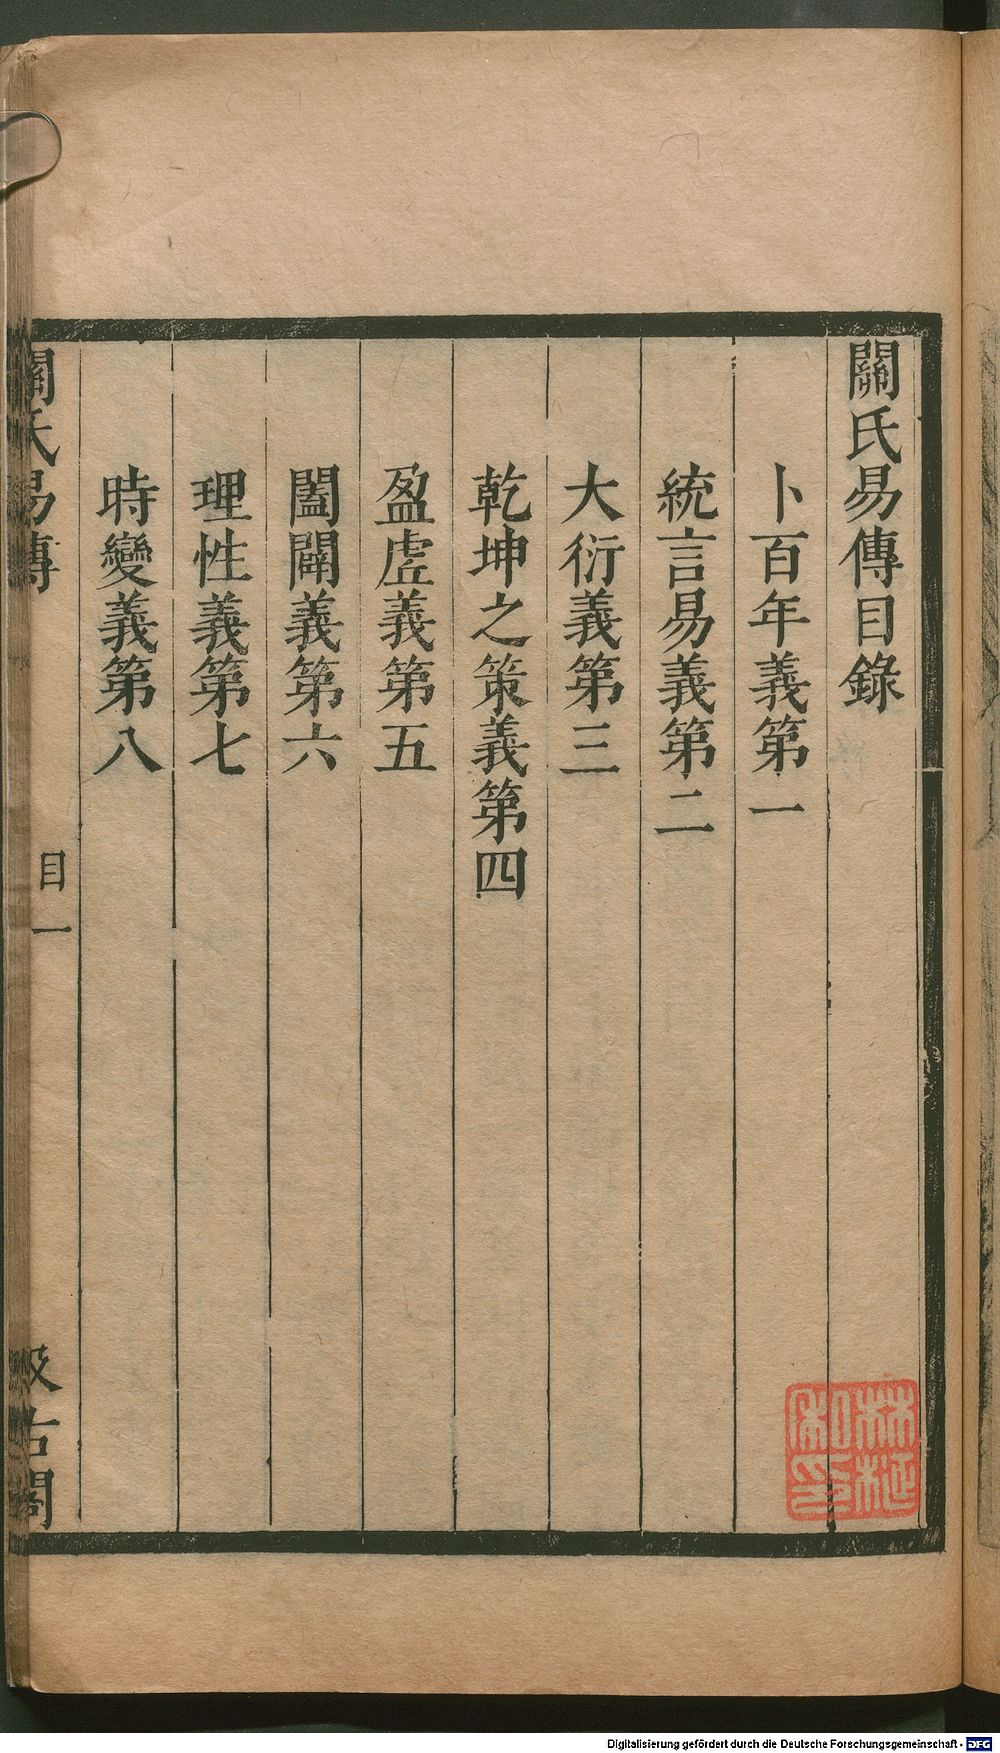 關氏易傳目錄
卜百年義第一
統言易義第二
大衍義第三
乾坤之策義第四
盈虛義第五
闔闢義第六
理性義第七
時變義第八
關氏易傳
目一
汲古閣
Digitalisierung gefördert durch die Deutsche Forschungsgemeinschaft - DFG